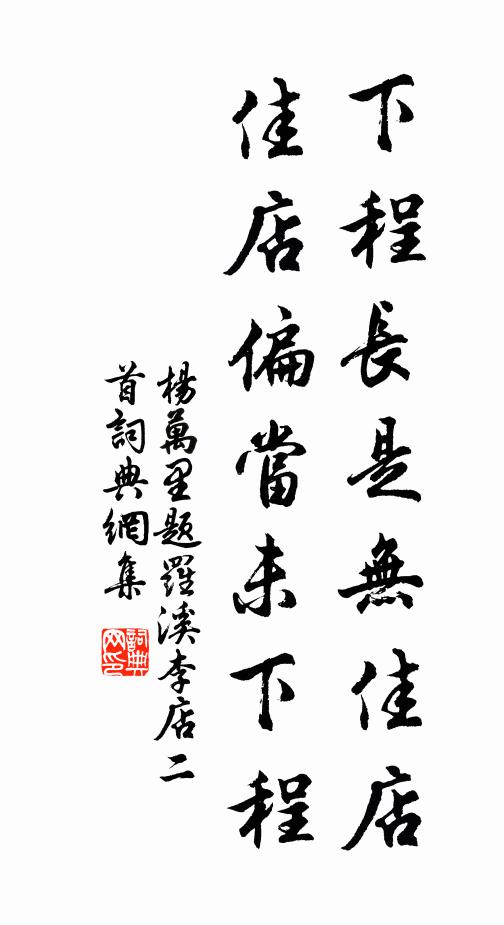 下程長是無佳店
佳店偏當未下程
楊萬里題羅溪李店二
首詞典網集
詞典網印